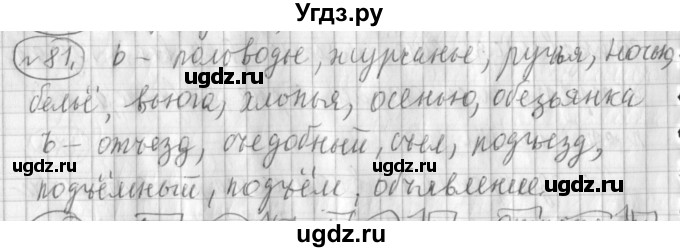 Угдз.ру
№81. ь - половодье, журчанье, ручья, ночью,
бельё, вьюга, хлопья, осенью, обезьянка
ъ - отъезд, съедобный, съел, подъезд,
подъёмный, подъём, объявление
ugdz.ru ugdz.ru ugdz.ru
ugdz.ru ugdz.ru ugdz.ru